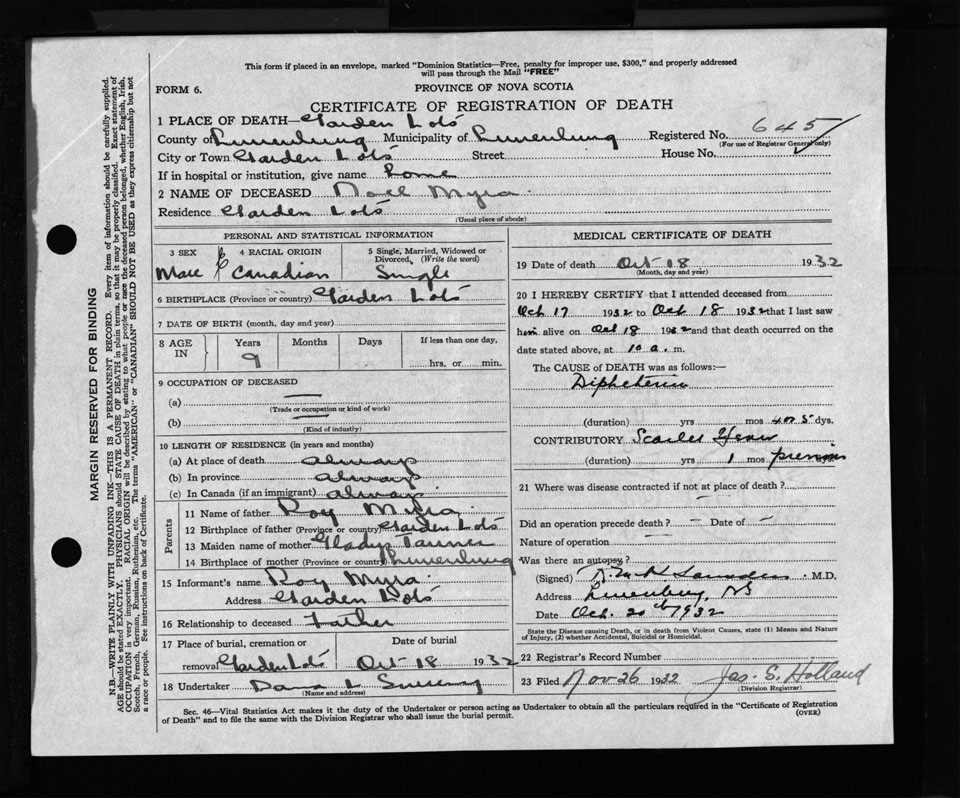 This form if placed in an envelope, marked "Dominion Statistics—Free, penalty for improper use, $300," and properly addressed
will pass through the Mail "FREE"
FORM 6.
PROVINCE OF NOVA SCOTIA
CERTIFICATE OF REGISTRATION OF DEATH
1 PLACE OF DEATH— Garden Lots
County of Lunenburg Municipality of Lunenburg Registered No. 645
(For use of Registrar General only)
City or Town Garden Lots Street House No.
If in hospital or institution, give name home
2 NAME OF DECEASED Noel Myra
Residence Garden Lots
(Usual place of abode)
PERSONAL AND STATISTICAL INFORMATION
3 SEX 4 RACIAL ORIGIN 5 Single, Married, Widowed or
Divorced, (Write the word)
Male Canadian Single
6 BIRTHPLACE (Province or country) Garden Lots
7 DATE OF BIRTH (month, day and year)
8 AGE IN Years Months Days If less than one day,
9 hrs. or min.
9 OCCUPATION OF DECEASED
(a)
(Trade or occupation or kind of work)
(b)
(Kind of industry)
10 LENGTH OF RESIDENCE (in years and months)
(a) At place of death always
(b) In province always
(c) In Canada (if an immigrant) always
Parents
11 Name of father Roy Myra
12 Birthplace of father (Province or country) Garden Lots
13 Maiden name of mother Gladys Tanner
14 Birthplace of mother (Province or country) Lunenburg
15 Informant's name Roy Myra
Address Garden Lots
16 Relationship to deceased Father
17 Place of burial, cremation or Date of burial
removal Garden Lots Oct 18 1932
18 Undertaker L
(Name and address)
MEDICAL CERTIFICATE OF DEATH
19 Date of death Oct 18 1932
(Month, day and year)
20 I HEREBY CERTIFY that I attended deceased from
Oct 17 1932 to Oct 18 1932 that I last saw
him alive on Oct 18 1932 and that death occurred on the
date stated above, at 10 a. m.
The CAUSE of DEATH was as follows:—
Diphtheria
(duration) yrs mos 4 or 5 dys.
CONTRIBUTORY Scarlet Fever
(duration) yrs 1 mos previous dys.
21 Where was disease contracted if not at place of death?
Did an operation precede death? — Date of —
Nature of operation —
Was there an autopsy?
(Signed) Saunders M.D.
Address Lunenburg, NS
Date Oct. 20th 1932
State the Disease causing Death, or in death from Violent Causes, state (1) Means and Nature
of Injury, (2) whether Accidental, Suicidal or Homicidal.
22 Registrar's Record Number
23 Filed Nov 26 1932 Jas. S. Holland
(Division Registrar)
Sec. 46—Vital Statistics Act makes it the duty of the Undertaker or person acting as Undertaker to obtain all the particulars required in the "Certificate of Registration
of Death" and to file the same with the Division Registrar who shall issue the burial permit.
(OVER)
MARGIN RESERVED FOR BINDING
N.B.—WRITE PLAINLY WITH UNFADING INK—THIS IS A PERMANENT RECORD. Every item of information should be carefully supplied.
AGE should be stated EXACTLY. PHYSICIANS should STATE CAUSE OF DEATH in plain terms, so that it may be properly classified. Exact statement of
OCCUPATION is very important. RACIAL ORIGIN will be described by stating to what people or race the deceased person belonged, whether English, Irish,
Scotch, French, German, Russian, Ruthenian, etc. The terms "AMERICAN" or "CANADIAN" SHOULD NOT BE USED as they express citizenship but not
a race or people. See instructions on back of Certificate.